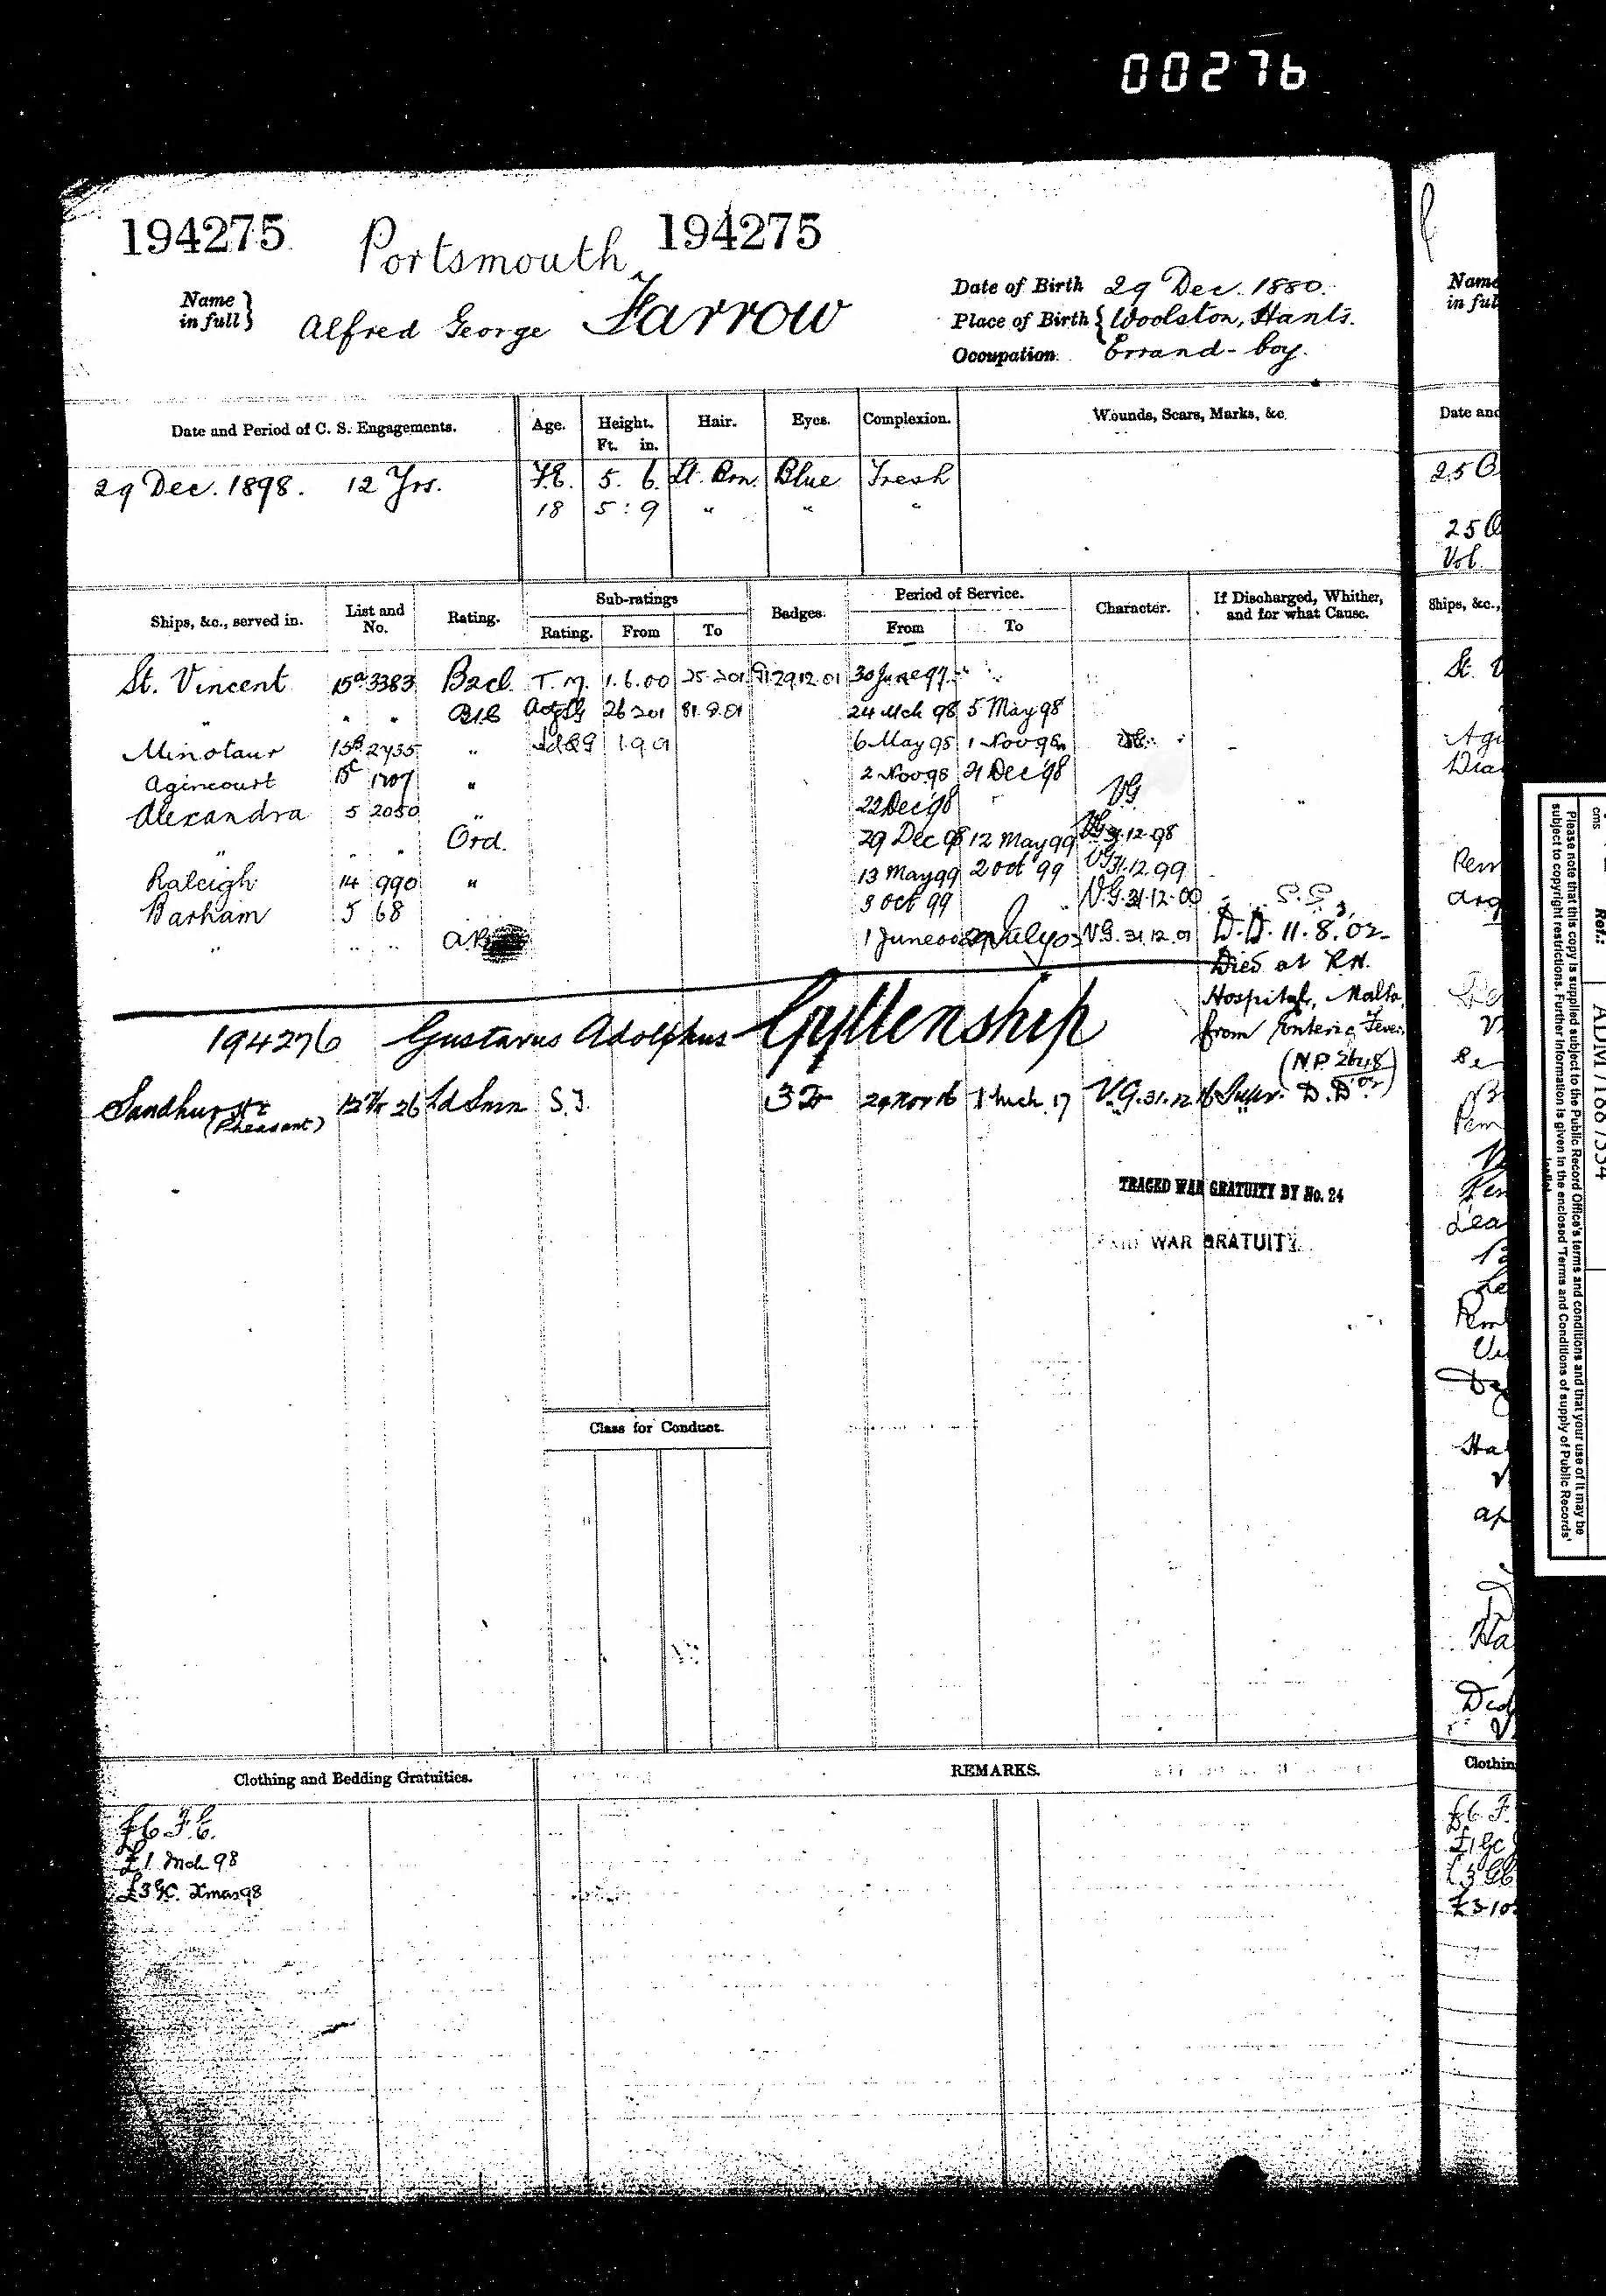 00276
194275 Portsmouth 194275
Name in full } Alfred George Farrow
Date of Birth 29 Dec. 1880.
Place of Birth { Woolston, Hants.
Occupation. Errand-boy.
Date and Period of C. S. Engagements. Age. Height. Ft. in. Hair. Eyes. Complexion. Wounds, Scars, Marks, &c.
29 Dec. 1898. 12 Yrs. F.E. 5. 6. Lt. Brn. Blue Fresh
18 5 : 9 " " "
Ships, &c., served in. List and No. Rating. Sub-ratings Rating. From To Badges. Period of Service. From To Character. If Discharged, Whither, and for what Cause.
St. Vincent 15a 3383 B2cl. T.M. 1.6.00 25.2.01 29.12.01 30 June 97 "
" " " B1C 26 2 01 31.8.01 24 Mch 98 5 May 98
Minotaur 15B 2455 " 1.9.01 6 May 98 1 Nov 98
Agincourt 15C 1707 " 2 Nov 98 21 Dec 98
Alexandra 5 2050 " 22 Dec 98 V.G.
" " " Ord. 29 Dec 98 12 May 99 V.G. 31.12.98
Raleigh 14 990 " 13 May 99 2 Oct 99 V.G. 31.12.99
Barham 5 68 3 Oct 99 V.G. 31.12.00
" " " A.B. 1 June 00 July V.G. 31.12.01 D.D. 11.8.02
Died at R.N.
Hospital, Malta,
from Enteric Fever
194276 Gustavus Adolphus Gyllenship
Sandhurst 26 Ld Smn S.T. 29 Nov 16 1 Mch 17 V.G. 31.12.16
(Pheasant)
TRACED WAR GRATUITY BY No. 24
WAR GRATUITY
Class for Conduct.
Clothing and Bedding Gratuities. REMARKS.
£6 F.E.
£1 Mch 98
£3 Xmas 98
Name in full
Date and
25
25
Vol.
Ships, &c.,
St. V
Agi
Dia
Pem
Clothin
£6 F.
Ref.:
ADM/188/334
Please note that this copy is supplied subject to the Public Record Office's terms and conditions and that your use of it may be
subject to copyright restrictions. Further information is given in the enclosed 'Terms and Conditions of supply of Public Records'